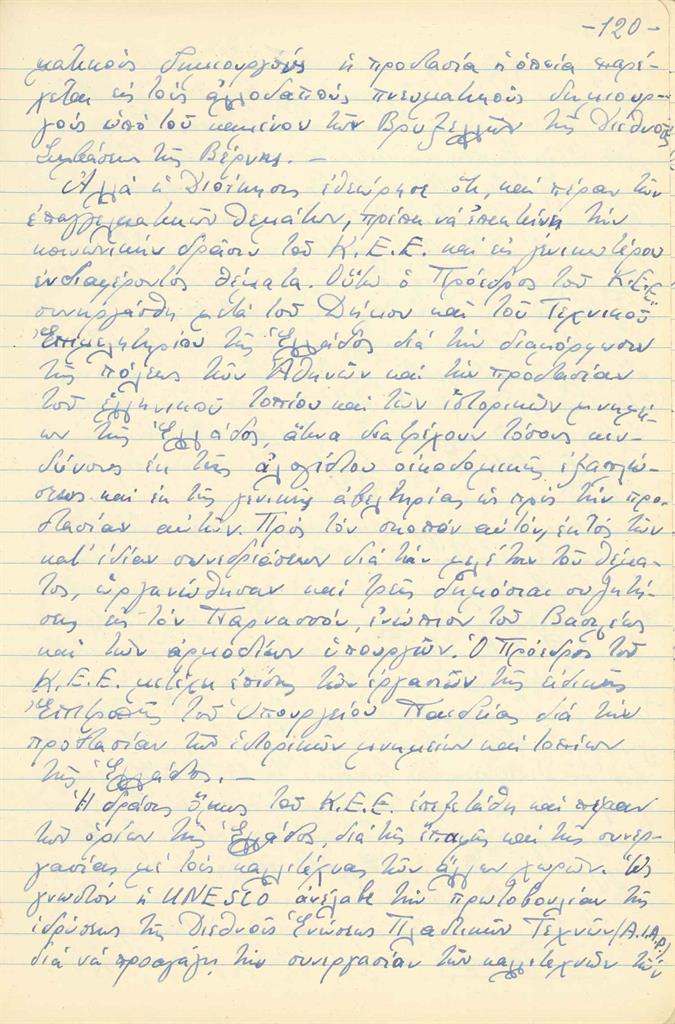 -120-
ματικοὺς δημιουργούς ἡ προστασία ἡ ὁποία παρέ-
χεται εἰς τοὺς ἀλλοδαποὺς πνευματικοὺς δημιουρ-
γοὺς ὑπὸ τοῦ κειμένου τῶν Βρυξελλῶν τῆς Διεθνοῦς
Συμβάσεως τῆς Βέρνης. —
Ἀλλὰ ἡ Διοίκησις ἐθεώρησε ὅτι, καὶ πέραν τῶν
ἐπαγγελματικῶν θεμάτων, πρέπει νὰ ἐπεκτείνη τὴν
κοινωνικὴν δρᾶσιν τοῦ Κ.Ε.Ε. καὶ εἰς γενικωτέρου
ἐνδιαφέροντος θέματα. Οὕτω ὁ Πρόεδρος τοῦ Κ.Ε.Ε.
συνηργάσθη μετὰ τοῦ Δήμου καὶ τοῦ Τεχνικοῦ
Ἐπιμελητηρίου τῆς Ἑλλάδος διὰ τὴν διαμόρφωσιν
τῆς πόλεως τῶν Ἀθηνῶν καὶ τὴν προστασίαν
τοῦ ἑλληνικοῦ τοπίου καὶ τῶν ἱστορικῶν μνημεί-
ων τῆς Ἑλλάδος, ἅτινα διατρέχουν τόσους κιν-
δύνους ἐκ τῆς ἀλογίστου οἰκοδομικῆς ἐξαπλώ-
σεως καὶ ἐκ τῆς γενικῆς ἀβελτηρίας ὡς πρὸς τὴν προ-
στασίαν αὐτῶν. Πρὸς τὸν σκοπὸν αὐτόν, ἐκτὸς τῶν
κατ' ἰδίαν συνεδριάσεων διὰ τὴν μελέτην τοῦ θέμα-
τος, ὠργανώθησαν καὶ τρεῖς δημόσιαι συζητή-
σεις εἰς τὸν Παρνασσόν, ἐνώπιον τοῦ Βασιλέως
καὶ τῶν ἁρμοδίων ὑπουργῶν. Ὁ Πρόεδρος τοῦ
Κ.Ε.Ε. μετέχει ἐπίσης τῶν ἐργασιῶν τῆς εἰδικῆς
Ἐπιτροπῆς τοῦ Ὑπουργείου Παιδείας διὰ τὴν
προστασίαν τῶν ἱστορικῶν μνημείων καὶ τοπίων
τῆς Ἑλλάδος. —
Ἡ δρᾶσις ὅμως τοῦ Κ.Ε.Ε. ἐπεξετάθη καὶ πέραν
τῶν ὁρίων τῆς Ἑλλάδος, διὰ τῆς ἐπαφῆς καὶ τῆς συνερ-
γασίας μὲ τοὺς καλλιτέχνας τῶν ἄλλων χωρῶν. Ὡς
γνωστόν ἡ UNESCO ἀνέλαβε τὴν πρωτοβουλίαν τῆς
ἱδρύσεως τῆς Διεθνοῦς Ἑνώσεως Πλαστικῶν Τεχνῶν (A.I.A.P.)
διὰ νὰ προαγάγη τὴν συνεργασίαν τῶν καλλιτεχνῶν τῶν